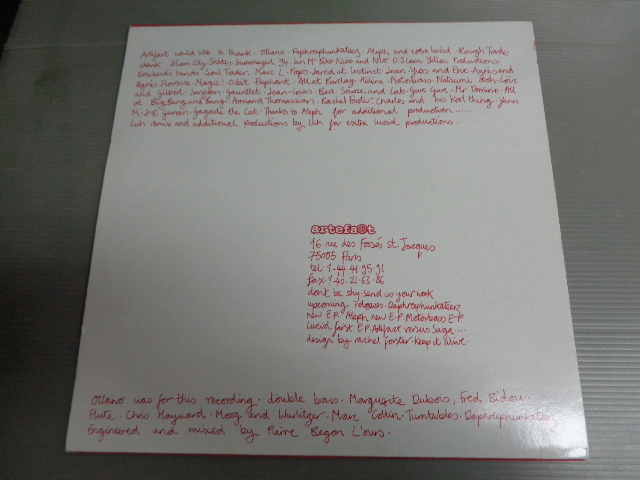 Artefact would like to thank. Ollano. Daphrephunkateez. Aleph, and extra lucid. Rough Trade
Slam City Skates. Yellow Productions.
Soul Trader. Marc L. Pages Jared at Instinct. Jean-Yves and Eric. Agnès and
Agnès. Florence. Magic. Orbit. Elephant. All at Barclay. Hélène. Motorbass. Natsumi. dosh. Love
and Gilbert. Jean-Louis. Bea. Source and Labo. Yvre Gwe. Mr Domino. All
at Big Bang and Bang. Armand Thomassian. Rachel Forster. Charles and his Red thing. Yann
M. Jagoide the Cat. Thanks to Aleph for additional production......
Luh remix and additional productions by Luh for extra lucid productions.
artefact
16 rue des fossés st. Jacques
75005 Paris
tel. 1-44 41 95 91
fax. 1-40. 21. 63. 86
don't be shy. send us your work
upcoming releases. Daphrephunkateez
new E.P. Aleph new E.P Motorbass E-P
lucid first E.P. Artefact versus Saga....
design by rachel forster. keep it alive.
Ollano was for this recording. double bass. Marguerite Dubois, Fred Bidou.
Flute. Chris Hayward. Moog and Wurlitzer. Marc Collin. Turntables. Daphrephunkateez
Engineered and mixed by Pierre Begon L'ours.